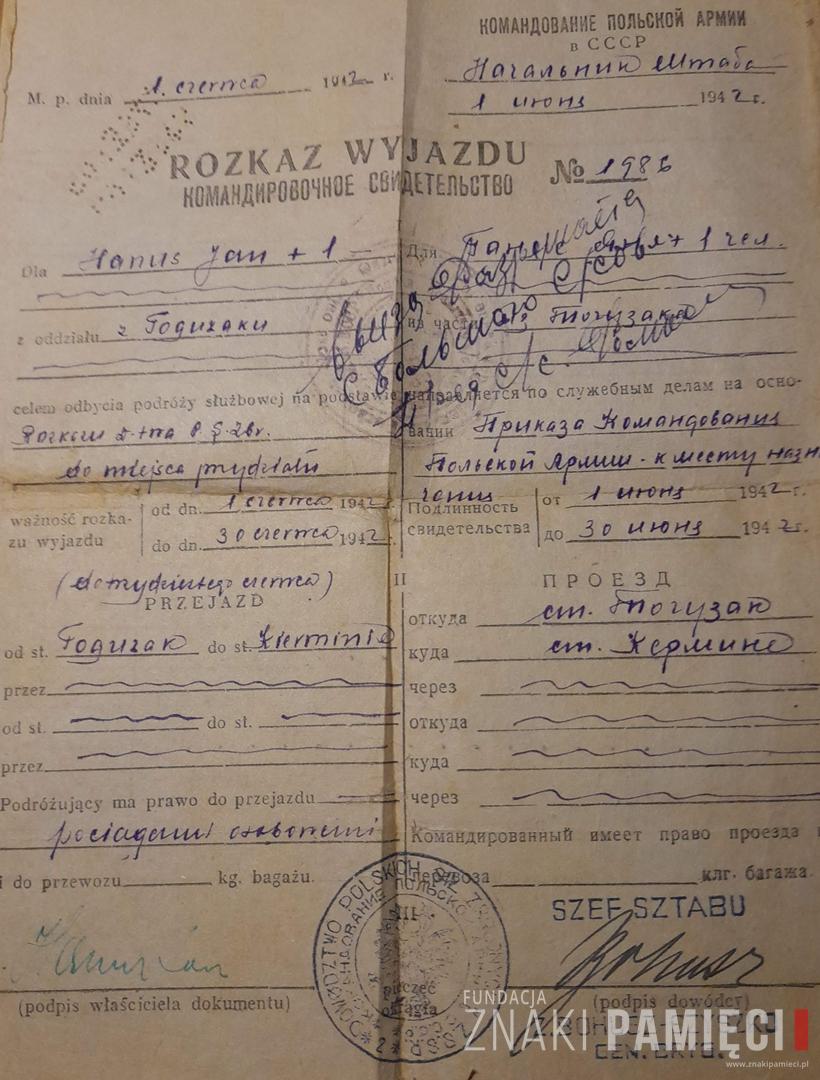 КОМАНДОВАНИЕ ПОЛЬСКОЙ АРМИИ
в СССР
Начальник Штаба
М. p. dnia 1. czerwca 1942 r.
1 июня 1942 г.
ROZKAZ WYJAZDU
КОМАНДИРОВОЧНОЕ СВИДЕТЕЛЬСТВО
№ 1986
Dla Hanus Jan + 1 —
Для + 1 чел.
z oddziału z
на час из Тогузака
celem odbycia podróży służbowej na podstawie
направляется по служебным делам на осно-
вании Приказа Командования
do miejsca przydziału
Польской Армии - к месту назна
чения
ważność rozka-
zu wyjazdu
od dn. 1 czerwca 1942 r.
do dn. 30 czerwca 1942 r.
Подлинность
свидетельства
от 1 июня 1942 г.
до 30 июня 1942 г.
(do trzydziestego czerwca)
II
PRZEJAZD
ПРОЕЗД
od st. Toguzak do st. Kierminie
откуда ст. Тогузак
куда ст. Кермине
przez
через
od st. do st.
откуда
przez
куда
Podróżujący ma prawo do przejazdu
через
pociągami osobowemi
Командированный имеет право проезда и
i do przewozu kg. bagażu.
перевоза клг. багажа.
III
SZEF SZTABU
DOWÓDZTWO POLSKICH SIŁ ZBROJNYCH
pieczęć
okrągła
(podpis właściciela dokumentu)
(podpis dowódcy)
GEN. BRYG.
FUNDACJA
ZNAKI PAMIĘCI
www.znakipamieci.pl